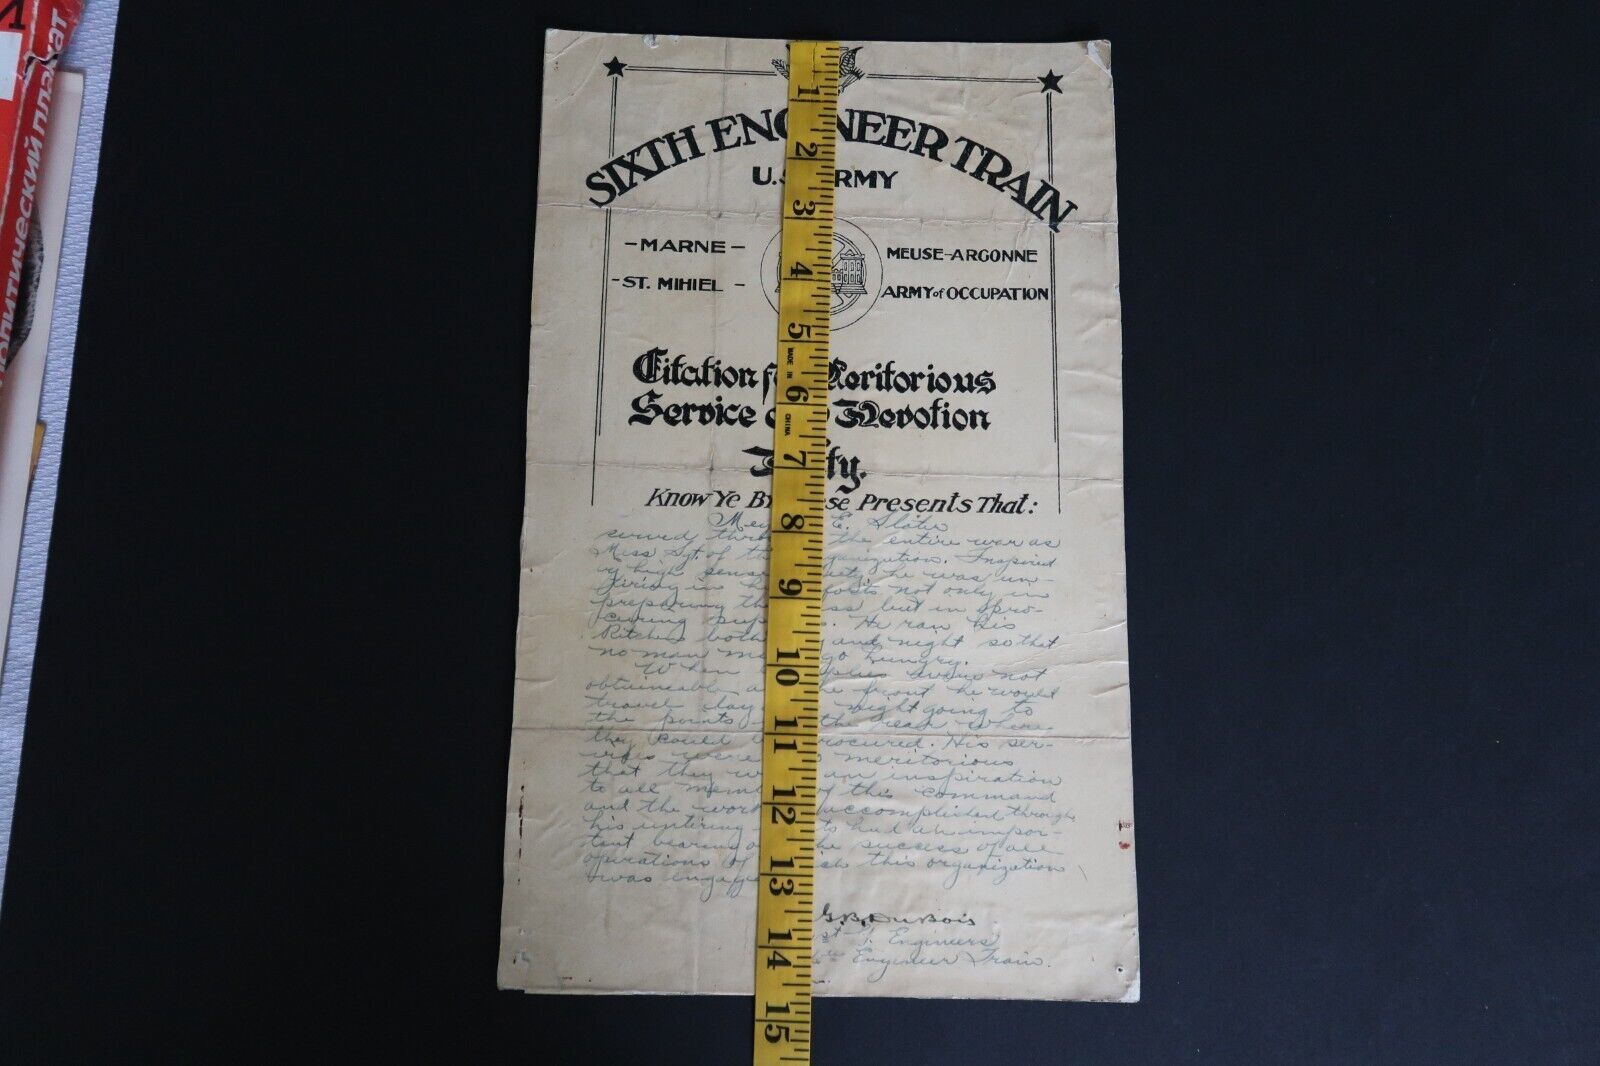 SIXTH ENG NEER TRAIN
U.S. ARMY
- MARNE -
MEUSE-ARGONNE
- ST. MIHIEL -
ARMY of OCCUPATION
Citation f Meritorious
Service Devotion
ty.
Know Ye By se Presents That:
Mey E. Slater
served thro the entire war as
Mess Sgt. of th ganization. Inspired
by high sense uty, he was un-
tiring in forts not only in
preparing the ss but in pro-
curing sup s. He ran his
Kitchen both and night so that
no man m go hungry.
When plies were not
obtainable a he front he would
travel day night going to
the points the rear where
they could rocured. His ser-
vices were meritorious
that they w an inspiration
to all mem of this command
and the work accomplished through
his untiring ts had an impor-
tant bearing o he success of all
operations of ich this organization
was engage
G.B. DuBois
st Engineers
Engineer Train.
1
2
3
4
5
MADE IN
6
CHINA
7
8
9
10
11
12
13
14
15
политический плакат